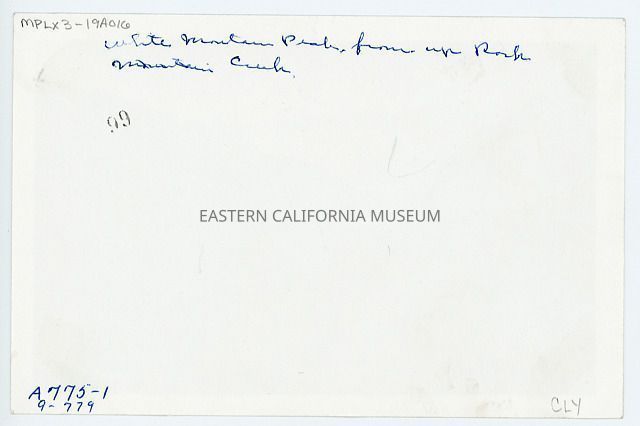 MPLX3-19A016
White Mountain Peak, from up Rock
Mountain Creek.
99
EASTERN CALIFORNIA MUSEUM
A775-1
9-779
CLY